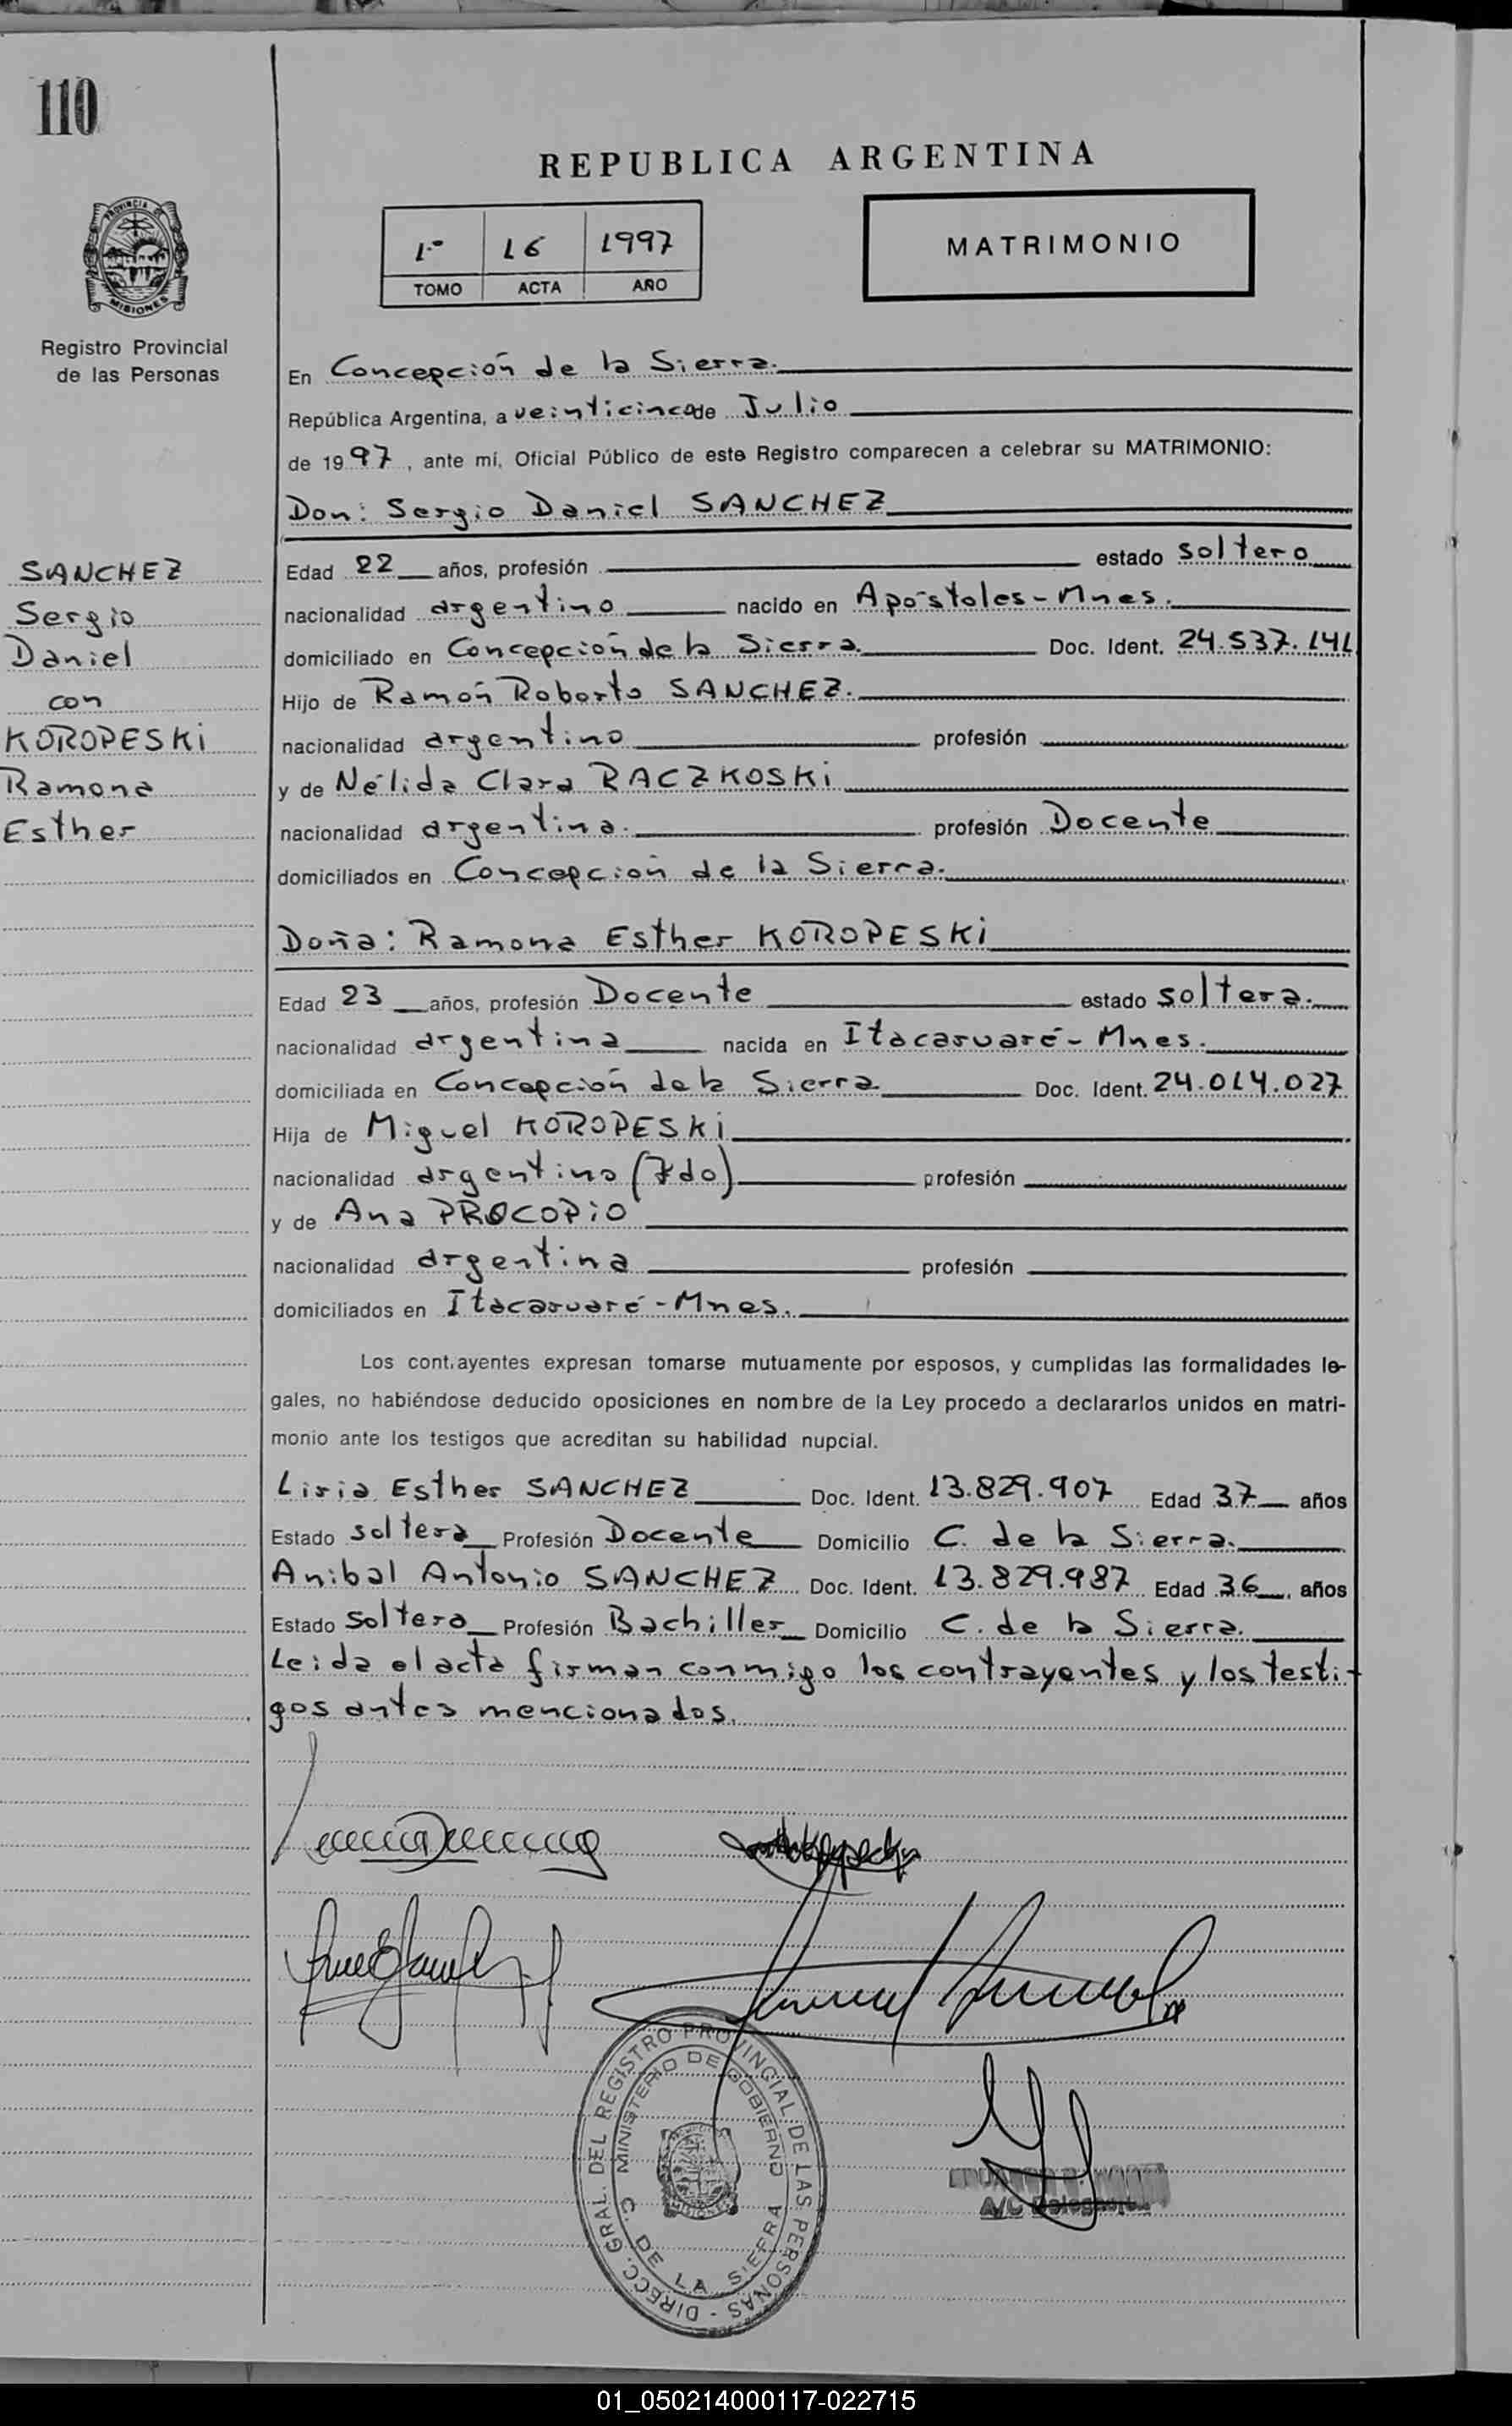 110
REPUBLICA ARGENTINA
PROVINCIA DE
MISIONES
Registro Provincial
de las Personas
1º 16 1997
TOMO ACTA AÑO
MATRIMONIO
En Concepción de la Sierra.
República Argentina, a veinticinco de Julio
de 1997, ante mí, Oficial Público de este Registro comparecen a celebrar su MATRIMONIO:
Don: Sergio Daniel SANCHEZ
Edad 22 años, profesión estado soltero
nacionalidad argentino nacido en Apóstoles-Mnes.
domiciliado en Concepción de la Sierra. Doc. Ident. 24.537.141
Hijo de Ramón Roberto SANCHEZ.
nacionalidad argentino profesión
y de Nélida Clara RACZKOSKi
nacionalidad argentina. profesión Docente
domiciliados en Concepción de la Sierra.
SANCHEZ
Sergio
Daniel
con
KOROPESKi
Ramona
Esther
Doña: Ramona Esther KOROPESKi
Edad 23 años, profesión Docente estado soltera.
nacionalidad argentina nacida en Itacaruaré-Mnes.
domiciliada en Concepción de la Sierra Doc. Ident. 24.014.027
Hija de Miguel KOROPESKi
nacionalidad argentino (Fdo) profesión
y de Ana PROCOPiO
nacionalidad argentina profesión
domiciliados en Itacaruaré-Mnes.
Los contrayentes expresan tomarse mutuamente por esposos, y cumplidas las formalidades le-
gales, no habiéndose deducido oposiciones en nombre de la Ley procedo a declararlos unidos en matri-
monio ante los testigos que acreditan su habilidad nupcial.
Liria Esther SANCHEZ Doc. Ident. 13.829.907 Edad 37 años
Estado soltera Profesión Docente Domicilio C. de la Sierra.
Anibal Antonio SANCHEZ Doc. Ident. 13.829.987 Edad 36 años
Estado soltero Profesión Bachiller Domicilio C. de la Sierra.
Leida el acta firman conmigo los contrayentes y los testi-
gos antes mencionados.
DIRECC. GRAL. DEL REGISTRO PROVINCIAL DE LAS PERSONAS -
MINISTERIO DE GOBIERNO
C. DE LA SIERRA
MISIONES
A/C Delegación
01_050214000117-022715